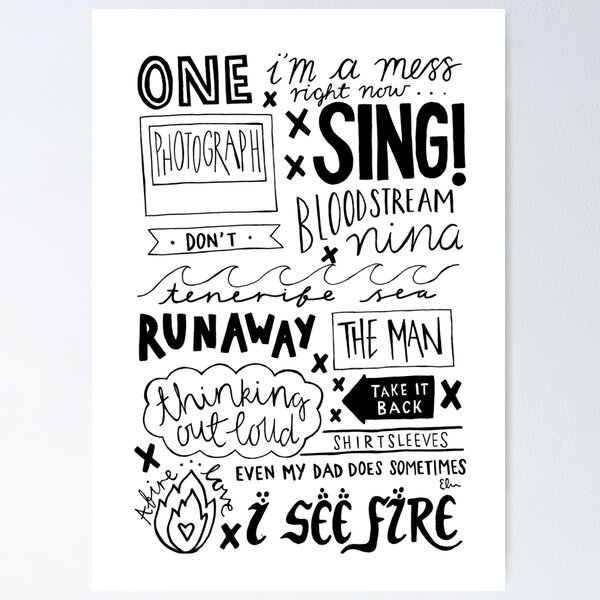 ONE
i'm a mess
right now...
PHOTOGRAPH
SING!
BLOODSTREAM
· DON'T ·
nina
tenerife sea
RUNAWAY
THE MAN
thinking
out loud
TAKE IT
BACK
SHIRTSLEEVES
EVEN MY DAD DOES SOMETIMES
Afire love
i SËË FIRE